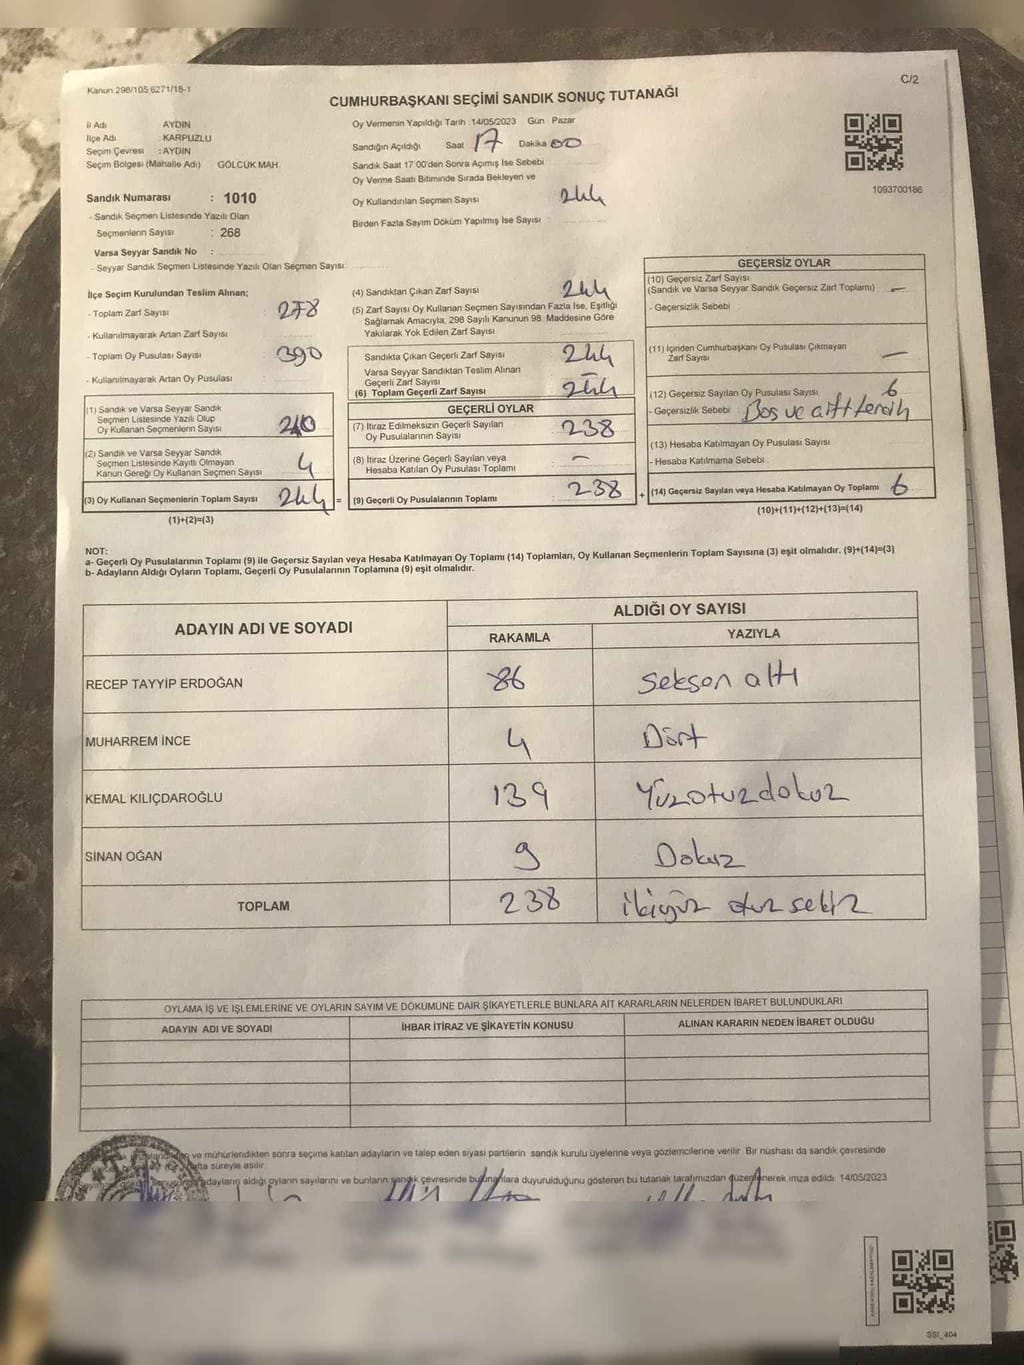 Kanun 298/105,6271/18-1
C/2
CUMHURBAŞKANI SEÇİMİ SANDIK SONUÇ TUTANAĞI
İl Adı AYDIN
İlçe Adı : KARPUZLU
Seçim Çevresi : AYDIN
Seçim Bölgesi (Mahalle Adı) GÖLCÜK MAH.
Sandık Numarası : 1010
- Sandık Seçmen Listesinde Yazılı Olan
Seçmenlerin Sayısı : 268
Varsa Seyyar Sandık No :
- Seyyar Sandık Seçmen Listesinde Yazılı Olan Seçmen Sayısı:
Oy Vermenin Yapıldığı Tarih : 14/05/2023 Gün : Pazar
Sandığın Açıldığı Saat 17 Dakika 00
Sandık Saat 17:00'den Sonra Açılmış İse Sebebi :
Oy Verme Saati Bitiminde Sırada Bekleyen ve
Oy Kullandırılan Seçmen Sayısı 244
Birden Fazla Sayım Döküm Yapılmış İse Sayısı :
1093700186
İlçe Seçim Kurulundan Teslim Alınan;
- Toplam Zarf Sayısı 278
- Kullanılmayarak Artan Zarf Sayısı
- Toplam Oy Pusulası Sayısı 390
- Kullanılmayarak Artan Oy Pusulası
(1) Sandık ve Varsa Seyyar Sandık
Seçmen Listesinde Yazılı Olup
Oy Kullanan Seçmenlerin Sayısı 240
(2) Sandık ve Varsa Seyyar Sandık
Seçmen Listesinde Kayıtlı Olmayan
Kanun Gereği Oy Kullanan Seçmen Sayısı 4
(3) Oy Kullanan Seçmenlerin Toplam Sayısı 244 =
(1)+(2)=(3)
(4) Sandıktan Çıkan Zarf Sayısı 244
(5) Zarf Sayısı Oy Kullanan Seçmen Sayısından Fazla İse, Eşitliği
Sağlamak Amacıyla, 298 Sayılı Kanunun 98. Maddesine Göre
Yakılarak Yok Edilen Zarf Sayısı
Sandıkta Çıkan Geçerli Zarf Sayısı 244
Varsa Seyyar Sandıktan Teslim Alınan
Geçerli Zarf Sayısı -
(6) Toplam Geçerli Zarf Sayısı 244
GEÇERLİ OYLAR
(7) İtiraz Edilmeksizin Geçerli Sayılan
Oy Pusulalarının Sayısı 238
(8) İtiraz Üzerine Geçerli Sayılan veya
Hesaba Katılan Oy Pusulası Toplamı -
(9) Geçerli Oy Pusulalarının Toplamı 238 +
GEÇERSİZ OYLAR
(10) Geçersiz Zarf Sayısı
(Sandık ve Varsa Seyyar Sandık Geçersiz Zarf Toplamı) -
- Geçersizlik Sebebi :
(11) İçinden Cumhurbaşkanı Oy Pusulası Çıkmayan
Zarf Sayısı -
(12) Geçersiz Sayılan Oy Pusulası Sayısı 6
- Geçersizlik Sebebi : Boş ve çift tercih
(13) Hesaba Katılmayan Oy Pusulası Sayısı
- Hesaba Katılmama Sebebi :
(14) Geçersiz Sayılan veya Hesaba Katılmayan Oy Toplamı 6
(10)+(11)+(12)+(13)=(14)
NOT:
a- Geçerli Oy Pusulalarının Toplamı (9) ile Geçersiz Sayılan veya Hesaba Katılmayan Oy Toplamı (14) Toplamları, Oy Kullanan Seçmenlerin Toplam Sayısına (3) eşit olmalıdır. (9)+(14)=(3)
b- Adayların Aldığı Oyların Toplamı, Geçerli Oy Pusulalarının Toplamına (9) eşit olmalıdır.
ADAYIN ADI VE SOYADI
ALDIĞI OY SAYISI
RAKAMLA YAZIYLA
RECEP TAYYİP ERDOĞAN 86 Seksen altı
MUHARREM İNCE 4 Dört
KEMAL KILIÇDAROĞLU 139 Yüzotuzdokuz
SİNAN OĞAN 9 Dokuz
TOPLAM 238 ikiyüz otuz sekiz
OYLAMA İŞ VE İŞLEMLERİNE VE OYLARIN SAYIM VE DÖKÜMÜNE DAİR ŞİKAYETLERLE BUNLARA AİT KARARLARIN NELERDEN İBARET BULUNDUKLARI
ADAYIN ADI VE SOYADI İHBAR İTİRAZ VE ŞİKAYETİN KONUSU ALINAN KARARIN NEDEN İBARET OLDUĞU
ve mühürlendikten sonra seçime katılan adayların ve talep eden siyasi partilerin sandık kurulu üyelerine veya gözlemcilerine verilir. Bir nüshası da sandık çevresinde
hafta süreyle asılır.
adayların aldığı oyların sayılarını ve bunların sandık çevresinde bulunanlara duyurulduğunu gösteren bu tutanak tarafımızdan düzenlenerek imza edildi. 14/05/2023
SSI_404